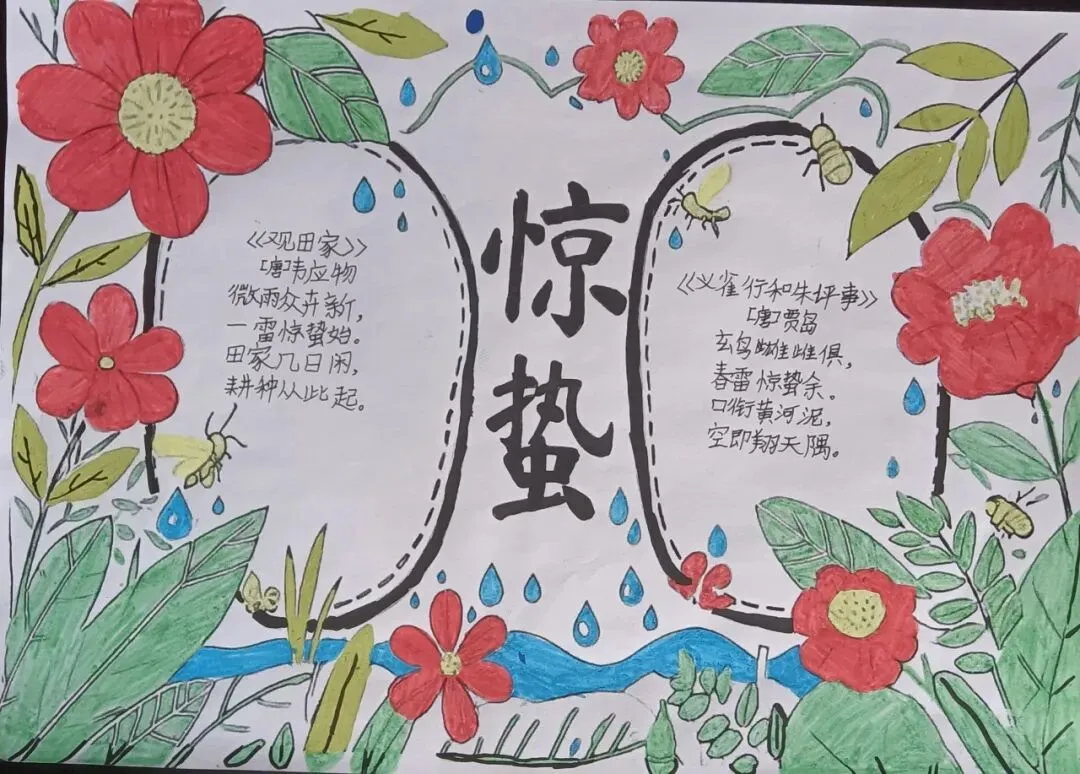 惊蛰
《观田家》
[唐]韦应物
微雨众卉新,
一雷惊蛰始。
田家几日闲,
耕种从此起。
《义雀行和朱评事》
[唐]贾岛
玄鸟雄雌俱,
春雷惊蛰余。
口衔黄河泥,
空即翔天隅。